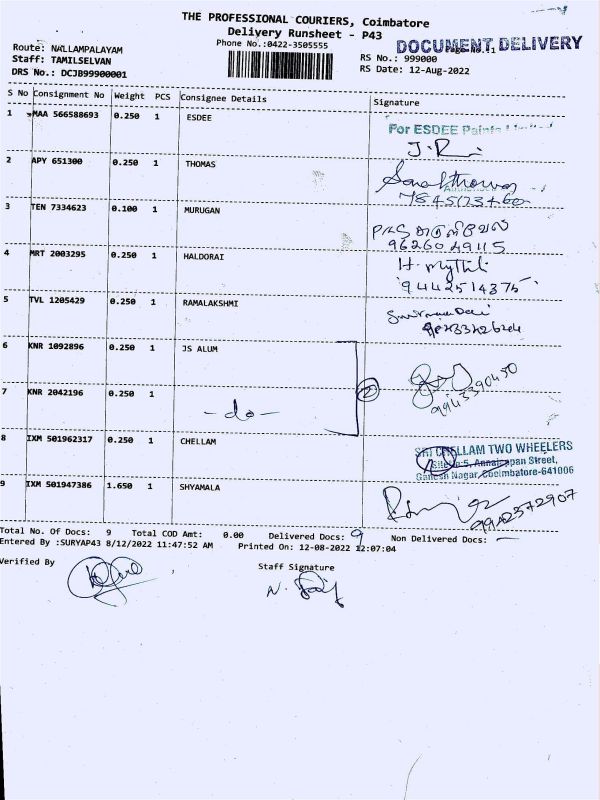 THE PROFESSIONAL COURIERS, Coimbatore
Delivery Runsheet - P43
Phone No.:0422-3505555
DOCUMENT DELIVERY
Page No.:1
Route: NALLAMPALAYAM
Staff: TAMILSELVAN
DRS No.: DCJB99900001
RS No.: 999000
RS Date: 12-Aug-2022
S No Consignment No Weight PCS Consignee Details Signature
1 MAA 566588693 0.250 1 ESDEE
For ESDEE Paints Limited
2 APY 651300 0.250 1 THOMAS
3 TEN 7334623 0.100 1 MURUGAN
9626049115
4 MRT 2003295 0.250 1 HALDORAI
H. Mythili
9442514375
5 TVL 1205429 0.250 1 RAMALAKSHMI
6 KNR 1092896 0.250 1 JS ALUM
2
9943390450
7 KNR 2042196 0.250 1 -do-
8 IXM 501962317 0.250 1 CHELLAM
SRI CHELLAM TWO WHEELERS
Site No:5, Annaiappan Street,
Ganesh Nagar, Coimbatore-641006
9 IXM 501947386 1.650 1 SHYAMALA
9942372907
Total No. Of Docs: 9 Total COD Amt: 0.00 Delivered Docs: 9 Non Delivered Docs: —
Entered By :SURYAP43 8/12/2022 11:47:52 AM Printed On: 12-08-2022 12:07:04
Verified By
Staff Signature